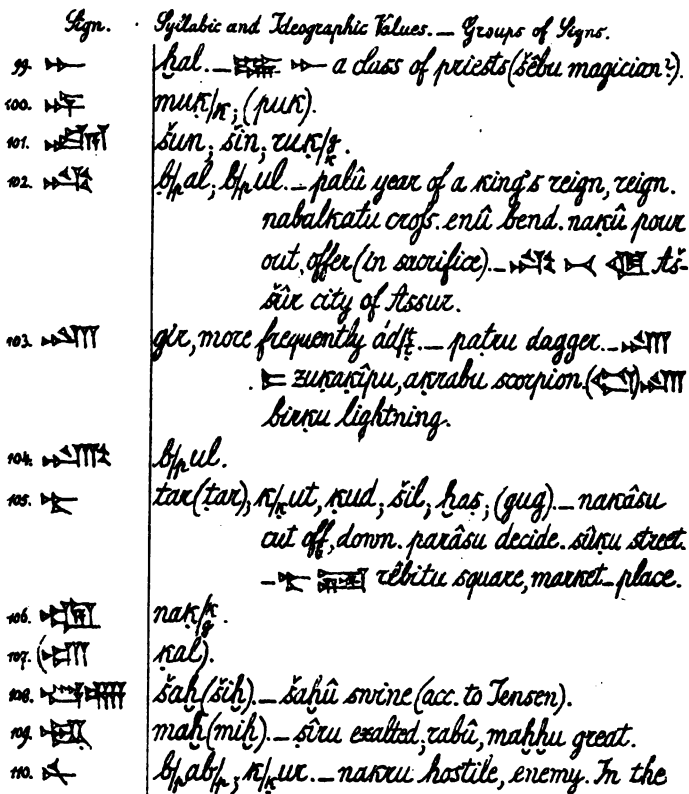 Sign. Syllabic and Ideographic Values. — Groups of Signs.
99. 𒄬 ḫal. — 𒄬 a class of priests (šêbu magician?).
100. muḳ/k; (puk).
101. šun; šin; ruḳ/g/k.
102. b/pal; b/pul. — palû year of a king's reign, reign.
nabalkatu cross. enû bend. naḳû pour
out, offer (in sacrifice). — Aš-
šûr city of Assur.
103. gír, more frequently — paṭru dagger. —
zuḳaḳîpu, aḳrabu scorpion.
birḳu lightning.
104. b/pul.
105. tar (ṭar); k/ḳut, ḳud; šil; ḫaṣ; (gug). — nakâsu
cut off, down. parâsu decide. sûḳu street.
— rêbitu square, market-place.
106. nak/ḳ/g.
107. (ḳal).
108. šaḫ (šiḫ). — šaḫû swine (acc. to Jensen).
109. maḫ (miḫ). — ṣîru exalted, rabû, maḫḫu great.
110. b/pab/p; k/ḳur. — nakru hostile, enemy. In the